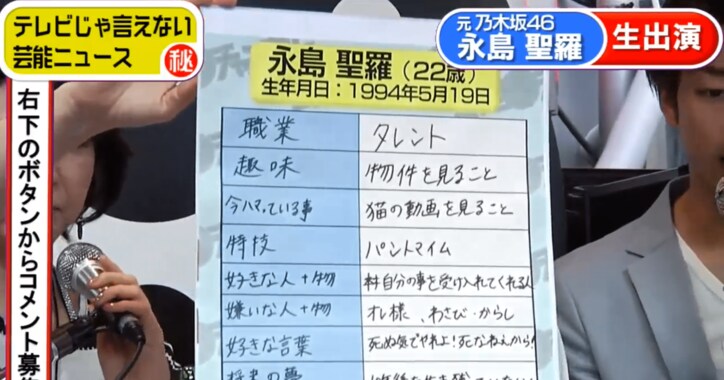 テレビじゃ言えない
芸能ニュース
㊙
元 乃木坂46
永島 聖羅
生出演
右下のボタンからコメント募
永島 聖羅（22歳）
生年月日：1994年5月19日
職業 タレント
趣味 物件を見ること
今ハマっている事 猫の動画を見ること
特技 パントマイム
好きな人＋物 自分の事を受け入れてくれる人
嫌いな人＋物 オレ様、わさび・からし
好きな言葉 死ぬ気でやれよ！死なねえから
将来の夢